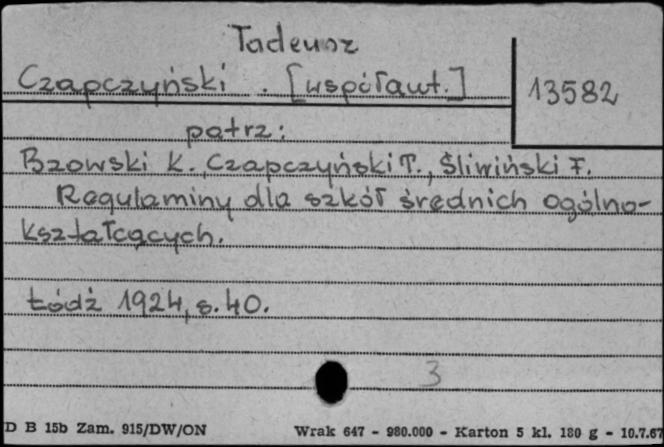 Tadeusz
Czapczyński. [współaut.]
13582
patrz:
Bzowski K., Czapczyński T., Śliwiński F.
Regulaminy dla szkół średnich ogólno-
kształcących.
Łódź 1924, s. 40.
3
D B 15b Zam. 915/DW/ON Wrak 647 - 980.000 - Karton 5 kl. 180 g - 10.7.67